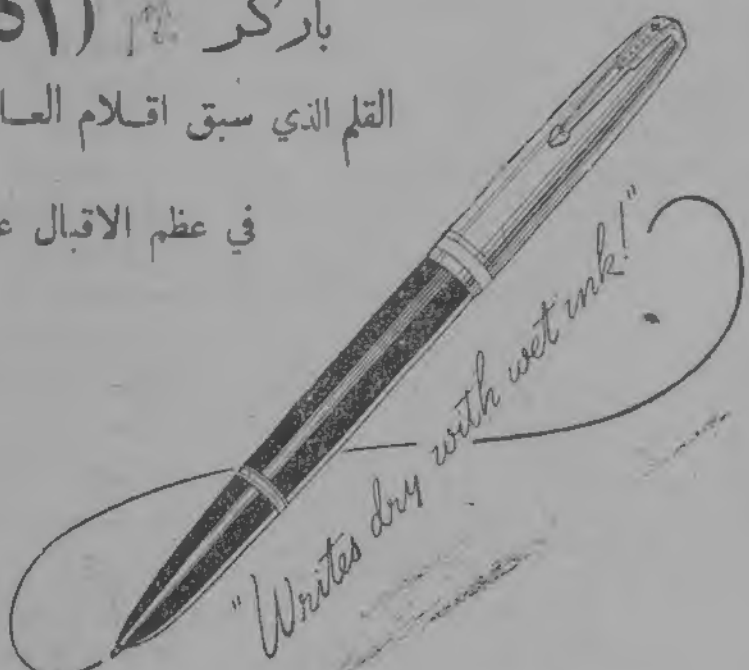 باركر (٥١
القلم الذي سبق اقـلام العـا
في عظم الاقبال ع
"Writes dry with wet ink!"